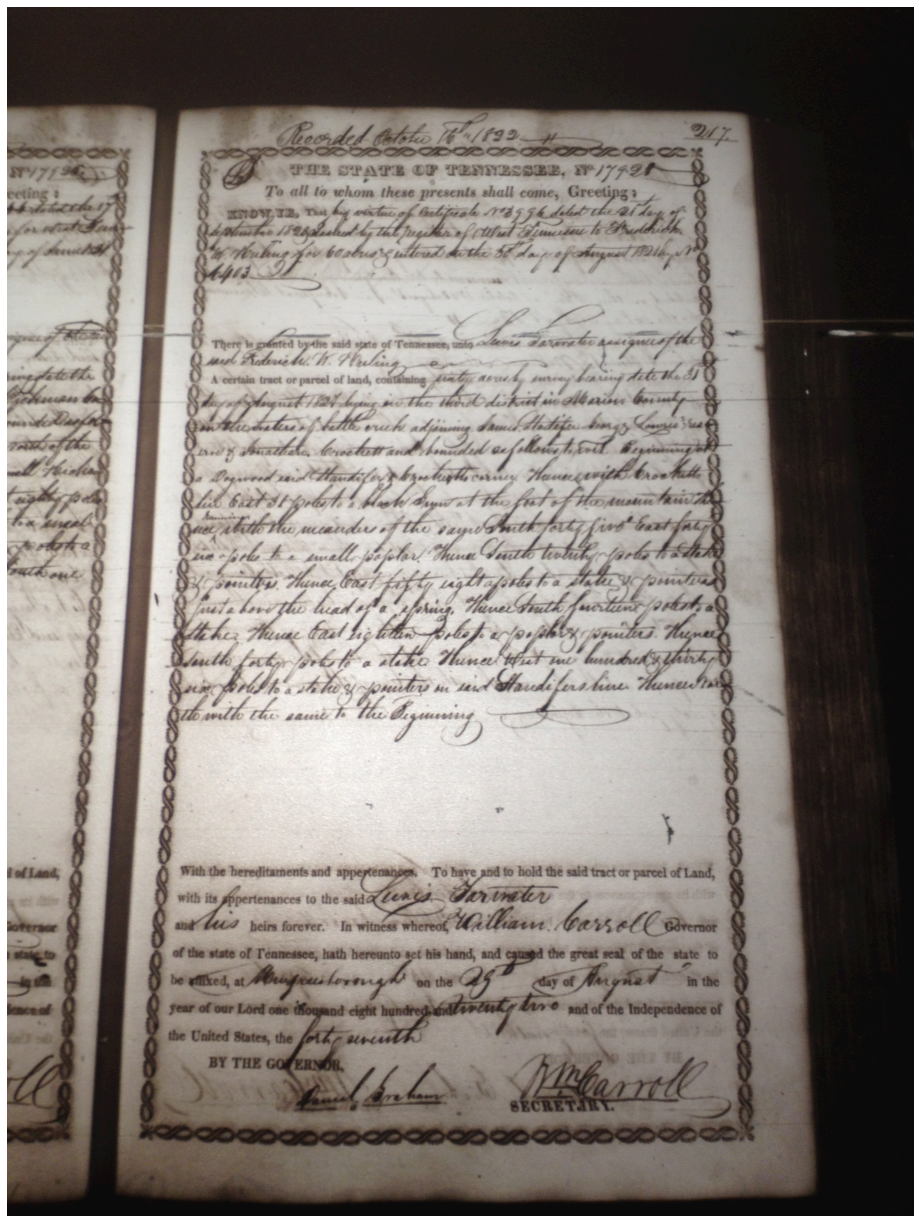 Recorded October 16th 1822
217
THE STATE OF TENNESSEE, No 17428
To all to whom these presents shall come, Greeting:
KNOW YE, That by virtue of Certificate No 3996 dated the 21st day of
issued by the register of West Tennessee to Frederick
W. Huling for 60 acres & entered on the 30th day of August 1821 by No
6403
There is granted by the said state of Tennessee, unto Lewis Tarwater assignee of the
said Frederick W. Huling
A certain tract or parcel of land, containing sixty acres by survey bearing date the 31
day of August 1821 lying in the third district in Marion County
on the waters of battle creek adjoining James Standifer George Lowris
& Jonathan Crockett and bounded as follows to wit. Beginning at
a Dogwood said Standifer & Crocketts corner Thence with Crocketts
line East 31 poles to a black Gum at the foot of the mountain The
nce with the meanders of the same South forty five East forty
six poles to a small poplar. Thence South twenty poles to a stake
& pointers. Thence East fifty eight poles to a stake & pointers
just above the head of a spring. Thence South fourteen poles to a
stake Thence East eighteen poles to a poplar & pointers. Thence
South forty poles to a stake Thence West one hundred & thirty
six poles to a stake & pointers in said Standifers line Thence nor
th with the same to the Beginning
With the hereditaments and appertenances. To have and to hold the said tract or parcel of Land,
with its appertenances to the said Lewis Tarwater
and his heirs forever. In witness whereof, William Carroll Governor
of the state of Tennessee, hath hereunto set his hand, and caused the great seal of the state to
be affixed, at Murfreesborough on the 29th day of August in the
year of our Lord one thousand eight hundred and twenty two and of the Independence of
the United States, the forty seventh
BY THE GOVERNOR,
Daniel Graham Wm Carroll
SECRETARY.